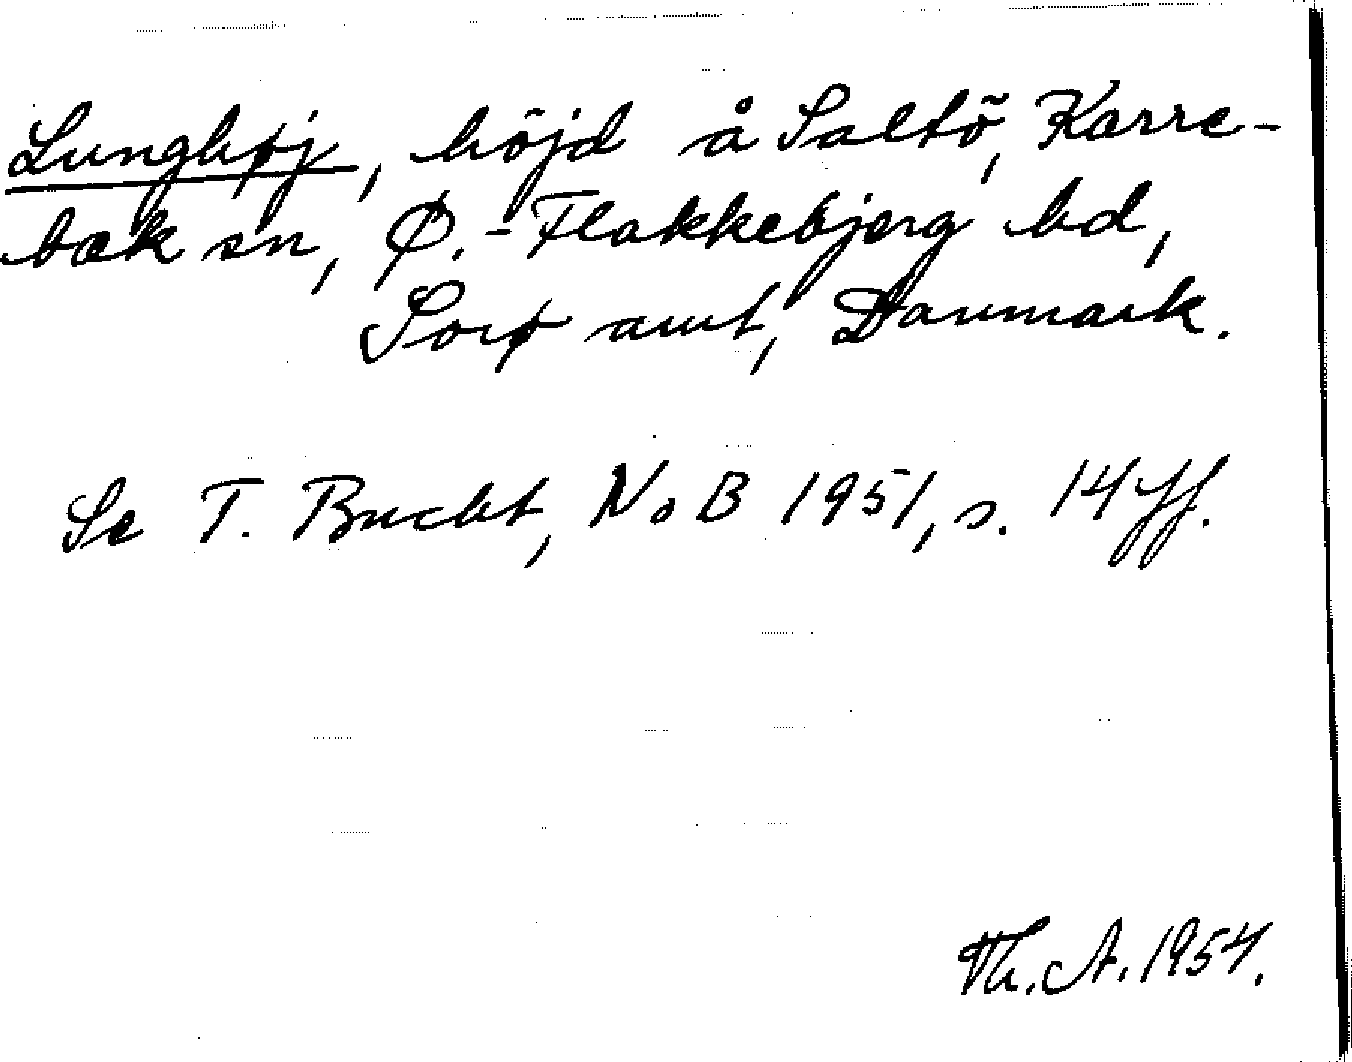 Lunghøj, höjd å Saltö, Karre-
bæk sn, Ø.-Flakkebjerg hd,
Sorø amt, Danmark.
Se T. Bucht, NoB 1951, s. 14 ff.
Th. A. 1954.